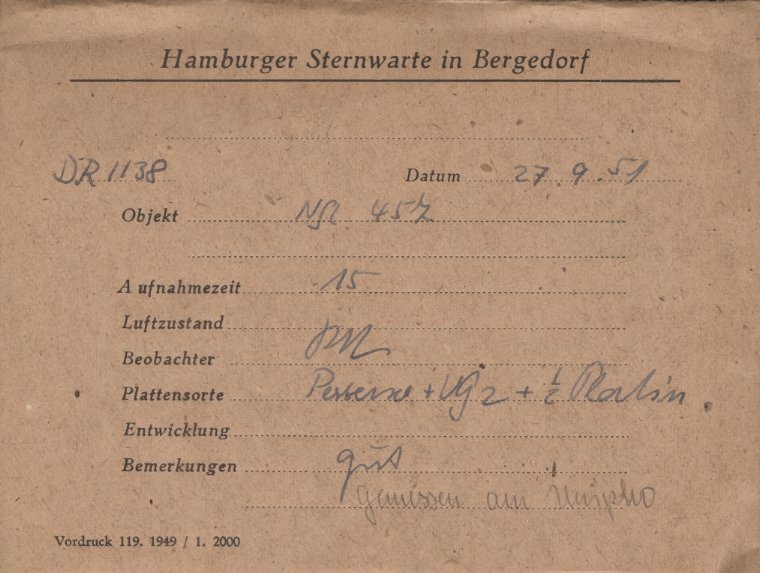 Hamburger Sternwarte in Bergedorf
DR 1138 Datum 27.9.51
Objekt
Aufnahmezeit 15
Luftzustand
Beobachter
Plattensorte + + 1/2 Platin
Entwicklung
Bemerkungen gut
gemessen am
Vordruck 119. 1949 / 1. 2000